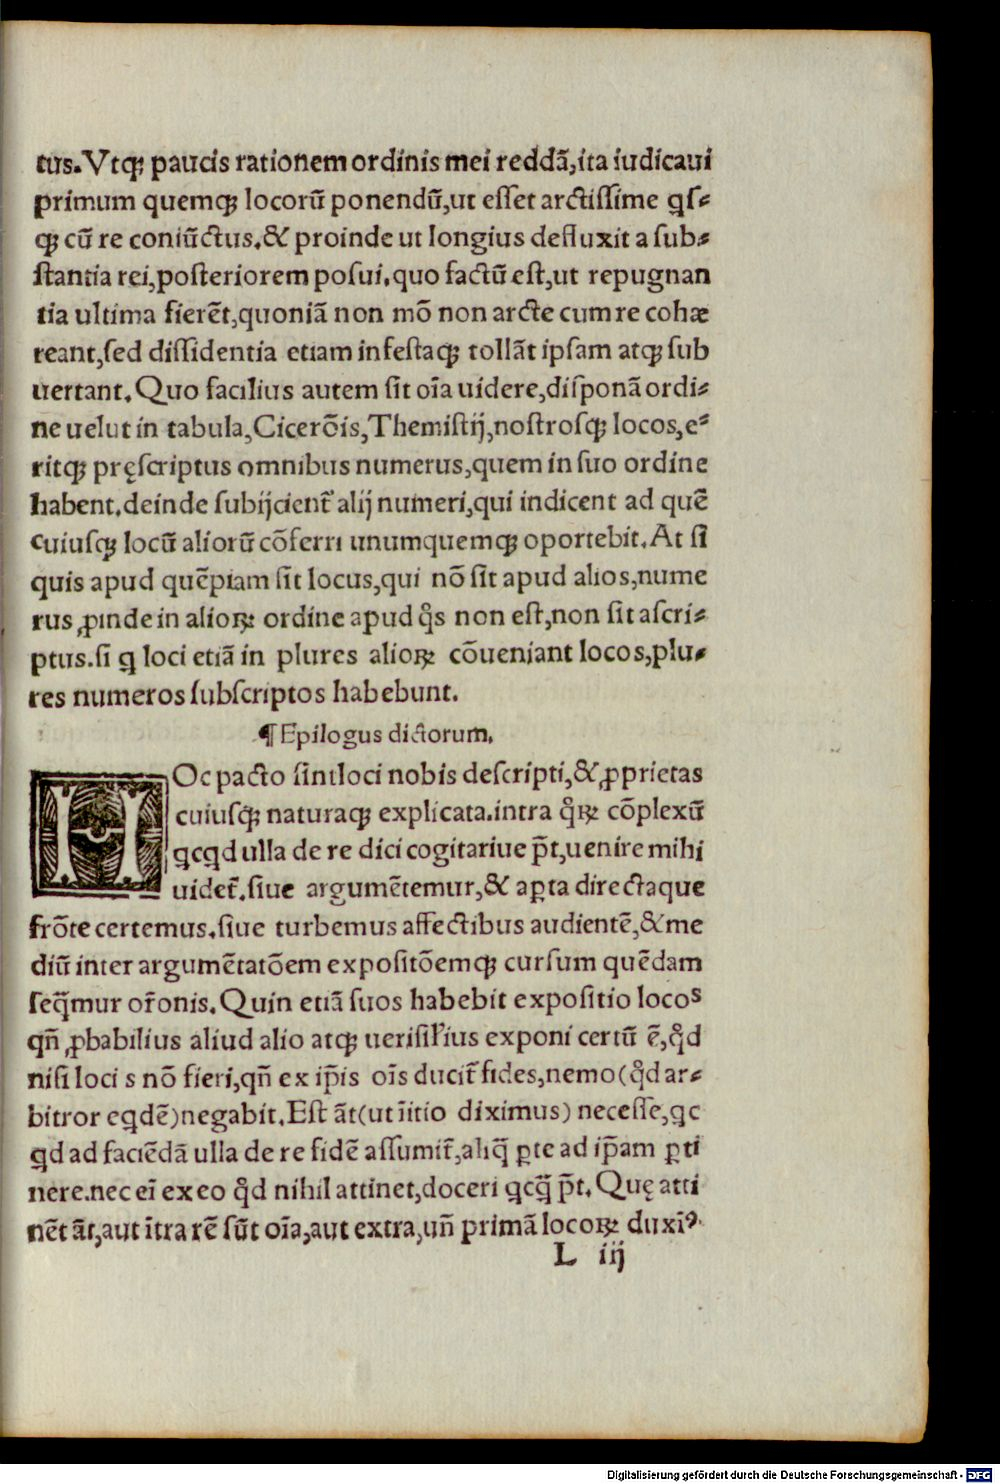 tus. Vtqꝫ paucis rationem ordinis mei reddā, ita iudicaui
primum quemqꝫ locorū ponendū, ut esset arctissime ꝗs⸗
qꝫ cū re coniūctus. & proinde ut longius defluxit a sub⸗
stantia rei, posteriorem posui. quo factū est, ut repugnan
tia ultima fierēt, quoniā non mō non arcte cum re cohæ
reant, sed dissidentia etiam infestaqꝫ tollāt ipsam atqꝫ sub
uertant. Quo facilius autem sit oīa uidere, disponā ordi⸗
ne uelut in tabula, Cicerōis, Themistij, nostrosqꝫ locos, e⸗
ritqꝫ pręscriptus omnibus numerus, quem in suo ordine
habent. deinde subijcient᷑ alij numeri, qui indicent ad quē
cuiusqꝫ locū aliorū cōferri unumquemqꝫ oportebit. At si
quis apud quēpiam sit locus, qui nō sit apud alios, nume
rus ꝓinde in alioꝝ ordine apud q̊s non est, non sit ascri⸗
ptus. si ꝗ loci etiā in plures alioꝝ cōueniant locos, plu⸗
res numeros subscriptos habebunt.
¶ Epilogus dictorum.
HOc pacto sint loci nobis descripti, & ꝓprietas
cuiusqꝫ naturaqꝫ explicata. intra q̊ꝝ cōplexū
ꝗcꝗd ulla de re dici cogitariue p̄t, uenire mihi
uidet᷑. siue argumētemur, & aꝑta directaque
frōte certemus. siue turbemus affectibus audientē, & me
diū inter argumētatōem expositōemqꝫ cursum quēdam
seq̄mur or̄onis. Quin etiā suos habebit expositio locos
qn̄ ꝓbabilius aliud alio atqꝫ uerisil'ius exponi certū ē, q̊d
nisi loci s nō fieri, qn̄ ex ip̄is oīs ducit᷑ fides, nemo (q̊d ar⸗
bitror eꝗdē) negabit. Est āt (ut īitio diximus) necesse, ꝗc
ꝗd ad faciēdā ulla de re fidē assumit᷑, aliq̄ ꝑte ad ip̄am ꝑti
nere. nec eī ex eo q̊d nihil attinet, doceri ꝗcq̄ p̄t. Quę atti
nēt āt, aut ītra rē sūt oīa, aut extra, un̄ primā locoꝝ duxiꝰ
L iij
Digitalisierung gefördert durch die Deutsche Forschungsgemeinschaft - DFG